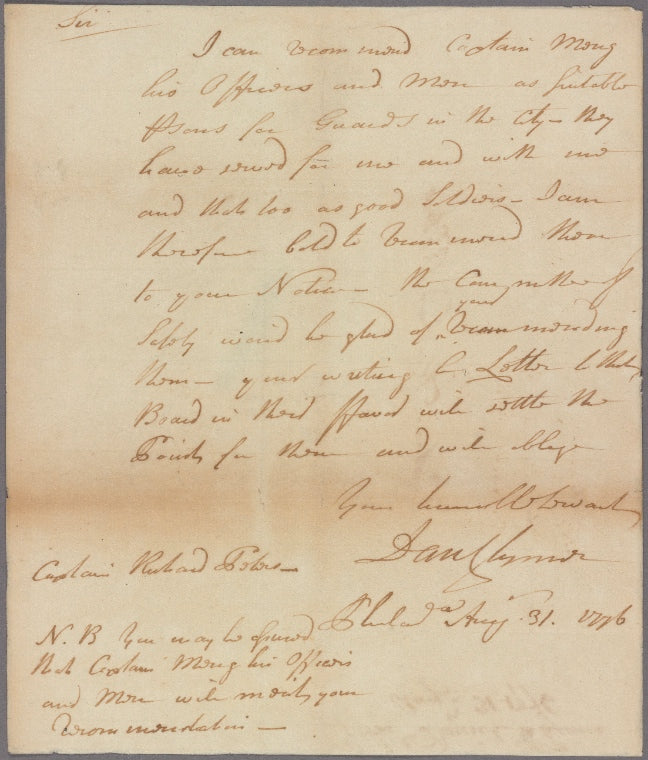 Sir
I can recommend Captain Meng
his Officers and Men as suitable
Psons for Guards in the City - they
have served for me and with me
and that too as good Soldiers - I am
therefore bold to recommend them
to your Notice - the Committee of
your
Safety would be glad of recommending
them - your writing a Letter to that
Board in their ffavor will settle the
Point for them and will oblige
Your humble Servant
Dan Clymer
Captain Richard Peters -
Philad.a Aug. 31. 1776
N.B You may be assured
that Captain Meng his Officers
and Men will merit your
recommendation -